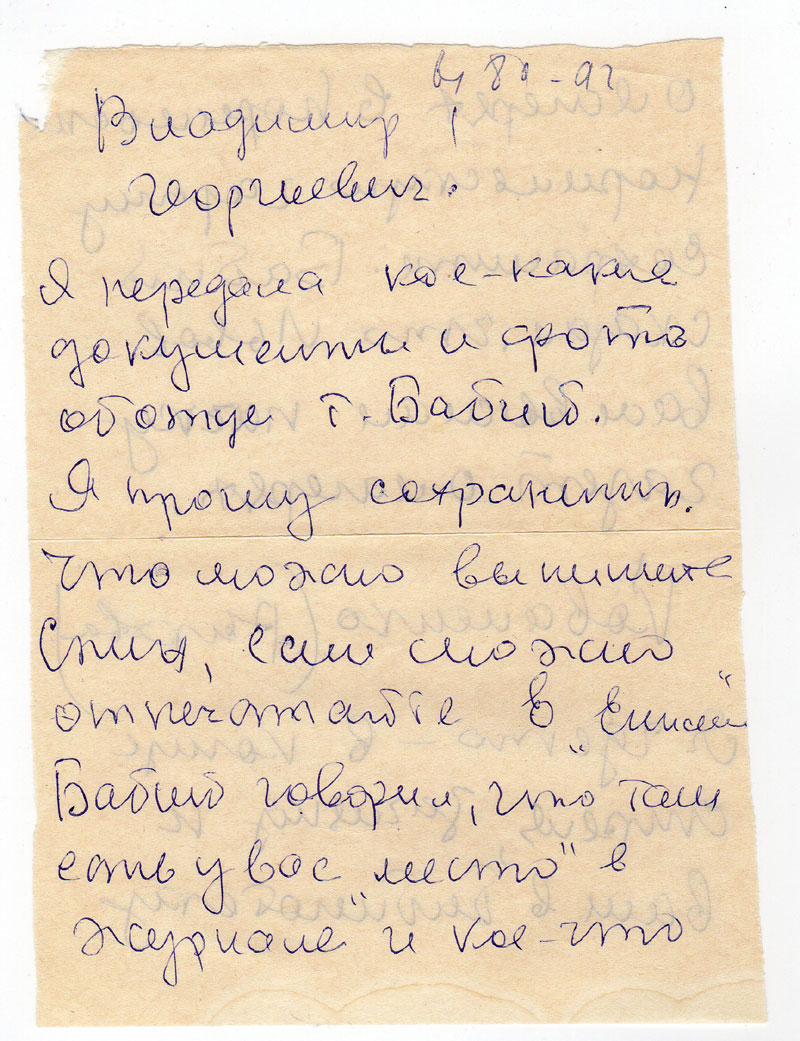 81-92
Владимир
Георгиевич!
Я передала кое-какие
документы и фоть
об отце т. Бабий.
Я прошу сохранить.
Что можно выпишите
Сних, если можно
отпечатайте в "Енисей"
Бабий говорил, что там
есть у вас "место" в
журнале" и кое-что